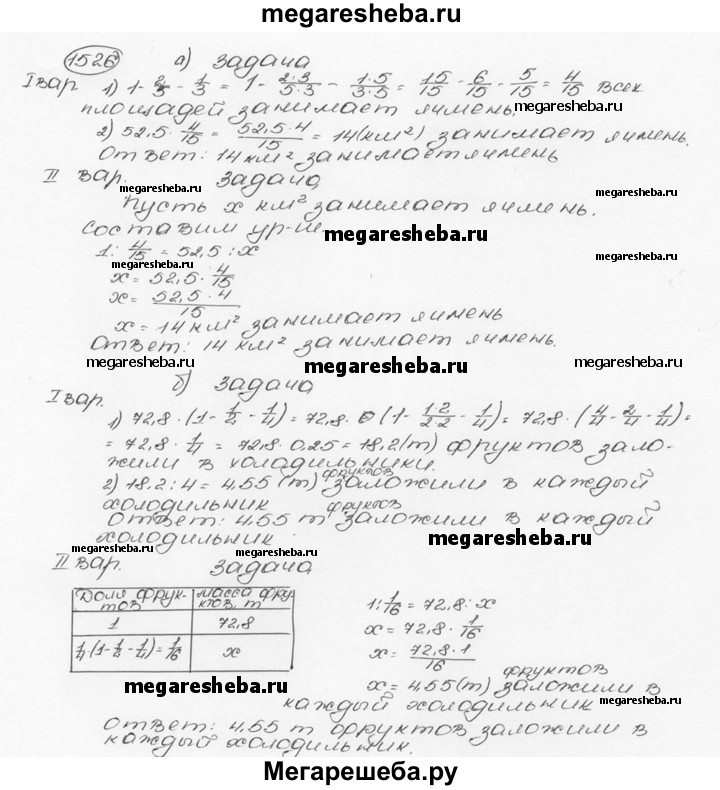 megaresheba.ru
1526 а) задача
I вар. 1) 1 - 2/5 - 1/3 = 1 - 2·3/5·3 - 1·5/3·5 = 15/15 - 6/15 - 5/15 = 4/15 всех
площадей занимает ячмень.
megaresheba.ru
2) 52,5 · 4/15 = 52,5·4/15 = 14 (км²) занимает ячмень.
Ответ: 14 км² занимает ячмень
megaresheba.ru
II вар. задача
megaresheba.ru
megaresheba.ru
Пусть x км² занимает ячмень.
Составим ур-ие.
megaresheba.ru
1 : 4/15 = 52,5 : x
megaresheba.ru
x = 52,5 · 4/15
x = 52,5·4/15
x = 14 км² занимает ячмень
Ответ: 14 км² занимает ячмень.
megaresheba.ru
megaresheba.ru
megaresheba.ru
б) задача
I вар.
1) 72,8 · (1 - 1/2 - 1/4) = 72,8 · (1 - 1·2/2·2 - 1/4) = 72,8 · (4/4 - 2/4 - 1/4) =
= 72,8 · 1/4 = 72,8 · 0,25 = 18,2 (т) фруктов зало-
жили в холодильники.
2) 18,2 : 4 = 4,55 (т) фруктов заложили в каждый
холодильник
Ответ: 4,55 т фруктов заложили в каждый
холодильник.
megaresheba.ru
megaresheba.ru
megaresheba.ru
II вар. задача
Доля фрук-
тов
масса фру
ктов, т
1
72,8
1/4 (1 - 1/2 - 1/4) = 1/16
x
1 : 1/16 = 72,8 : x
x = 72,8 · 1/16
x = 72,8·1/16
x = 4,55 (т) фруктов заложили в
каждый холодильник
megaresheba.ru
megaresheba.ru
megaresheba.ru
Ответ: 4,55 т фруктов заложили в
каждый холодильник.
Мегарешеба.ру